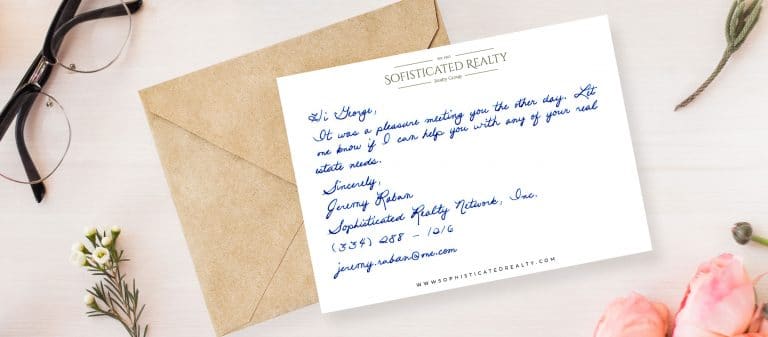 EST. 1987
SOFISTICATED REALTY
Realty Group
Hi George,
It was a pleasure meeting you the other day. Let
me know if I can help you with any of your real
estate needs.
Sincerely,
Jeremy Raban
Sophisticated Realty Network, Inc.
(334) 288 - 1216
jeremy.raban@me.com
WWW.SOPHISTICATEDREALTY.COM